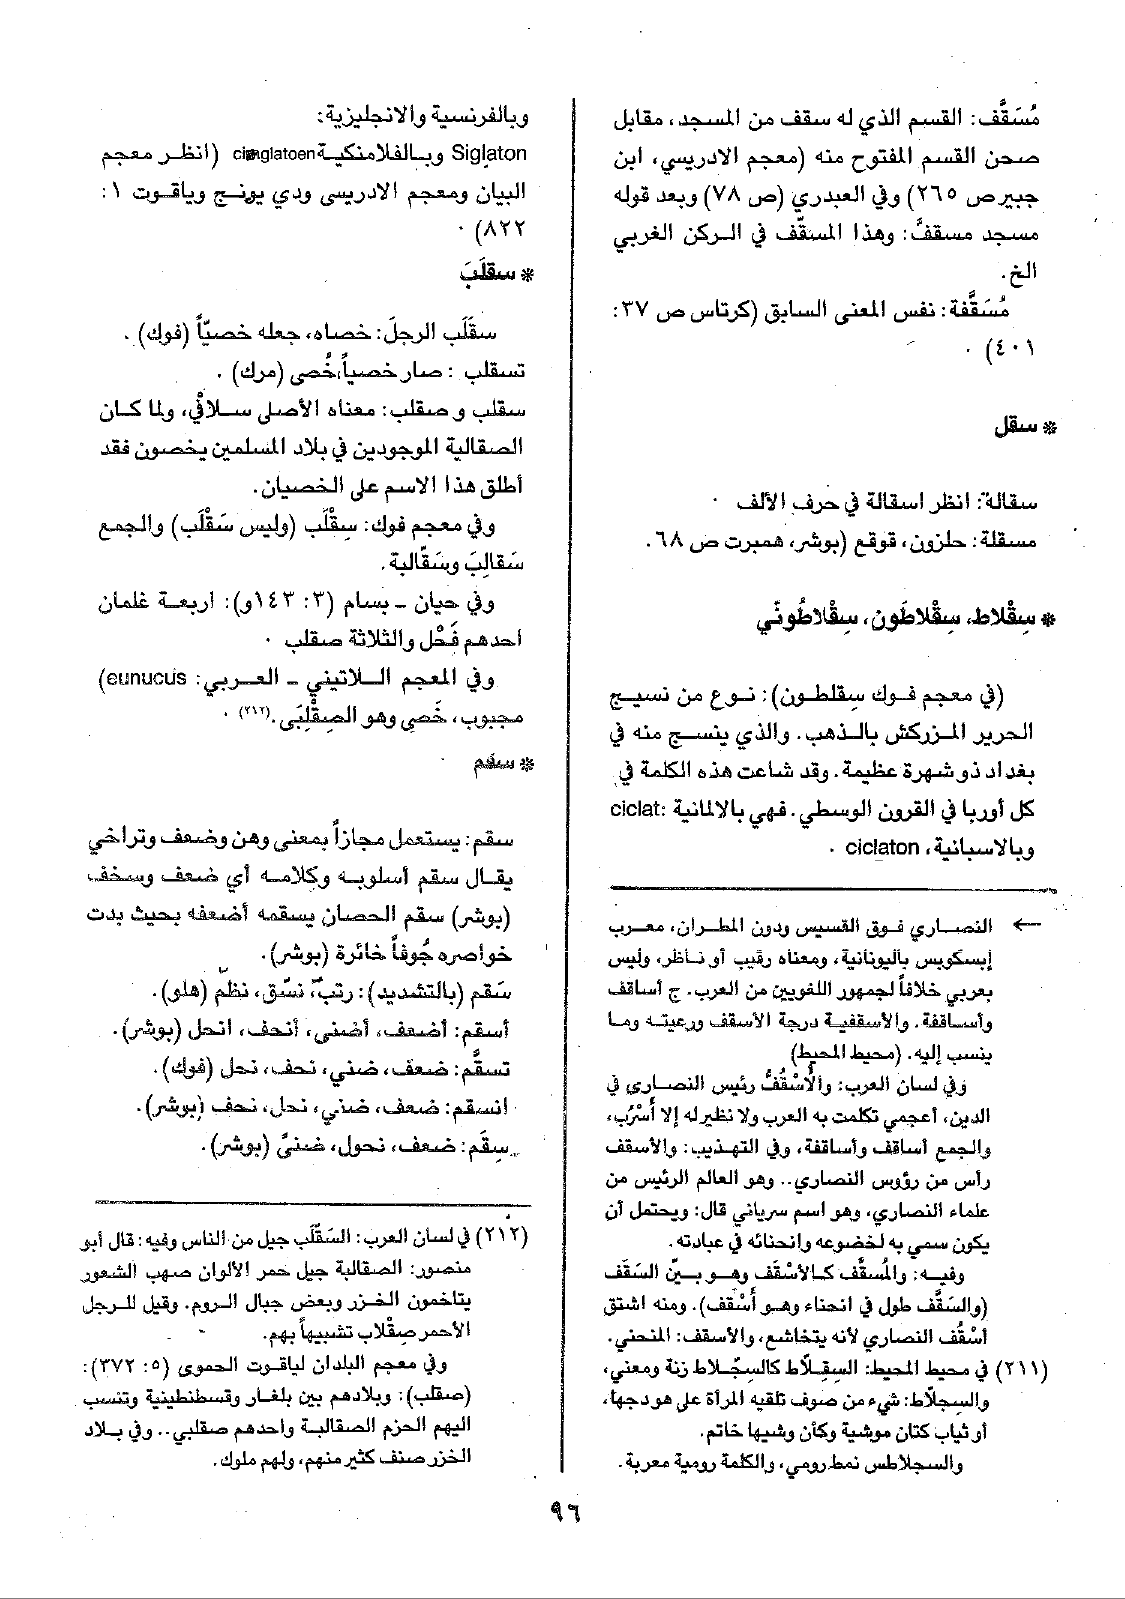 مُسَقَّف: القسم الذي له سقف من المسجد، مقابل
صحن القسم المفتوح منه (معجم الادريسي، ابن
جبير ص ٢٦٥) وفي العبدري (ص ٧٨) وبعد قوله
مسجد مسقفُّ: وهذا المسقّف في الركن الغربي
الخ.
مُسَقَّفة: نفس المعنى السابق (كرتاس ص ٣٧:
٤٠١) .
* سقل
سقالة: انظر اسقالة في حرف الألف .
مسقلة: حلزون، قوقع (بوشر، همبرت ص ٦٨.
* سِقْلاط، سِقْلاطَون، سِقْلاطُوني
(في معجم فوك سِقلطون): نوع من نسيج
الحرير المزركش بالذهب. والذي ينسج منه في
بغداد ذو شهرة عظيمة. وقد شاعت هذه الكلمة في
كل أوربا في القرون الوسطي. فهي بالالمانية :ciclat
وبالاسبانية، ciclaton .
← النصاري فوق القسيس ودون المطران، معرب
إبسكوبس باليونانية، ومعناه رقيب أو ناظر، وليس
بعربي خلافاً لجمهور اللغويين من العرب. ج أساقف
وأساقفة. والأسقفية درجة الأسقف ورعيته وما
ينسب إليه. (محيط المحيط)
وفي لسان العرب: والأُسْقُفُّ رئيس النصاري في
الدين، أعجمي تكلمت به العرب ولا نظير له إلا أُسْرُب،
والجمع أساقف وأساقفة، وفي التهذيب: والأسقف
رأس من رؤوس النصاري.. وهو العالم الرئيس من
علماء النصاري، وهو اسم سرياني قال: ويحتمل أن
يكون سمي به لخضوعه وانحنائه في عبادته.
وفيه: والمُسقَّف كالأسْقَف وهو بيّن السَقَف
(والسَقَف طول في انحناء وهو أَسْقف). ومنه اشتق
أسْقُف النصاري لأنه يتخاشع، والأسقف: المنحني.
(٢١١) في محيط المحيط: السِقِلّاط كالسِجِلّاط زنة ومعنى،
والسِجلّاط: شيء من صوف تلقيه المرأة على هودجها،
أو ثياب كتان موشية وكأن وشيها خاتم.
والسجلاطس نمط رومي، والكلمة رومية معربة.
وبالفرنسية والانجليزية:
Siglaton وبالفلامنكية (انظر معجم
البيان ومعجم الادريسي ودي يونج وياقوت ١:
٨٢٢) .
* سقلَبَ
سقَلَب الرجلَ: خصاه، جعله خصيّاً (فوك) .
تسقلب : صار خصياً، خُصى (مرك) .
سقلب وصقلب: معناه الأصلي سلافي، ولما كان
الصقالبة الموجودين في بلاد المسلمين يخصون فقد
أطلق هذا الاسم على الخصيان.
وفي معجم فوك: سِقْلَب (وليس سَقْلَب) والجمع
سَقالِبَ وسَقّالبة.
وفي حيان – بسام (٣: ١٤٣و): اربعة غلمان
احدهم فَحْل والثلاثة صقلب .
وفي المعجم اللاتيني – العربي: eunucus)
مجبوب، خَصِي وهو الصِقْلِبَى.(٢١٢) .
* سقم
سقم: يستعمل مجازاً بمعنى وهن وضعف وتراخي
يقال سقم أسلوبه وكلامه أي ضعف وسخف
(بوشر) سقم الحصان يسقمه أضعفه بحيث بدت
خواصره جُوفاً خائرة (بوشر).
سَقم (بالتشديد): رتب، نسّق، نظّم (هلو).
أسقم: أضعف، أضنى، أنحف، انحل (بوشر).
تسقَّم: ضعف، ضني، نحف، نحل (فوك).
انسقم: ضعف، ضني، نحل، نحف (بوشر).
سِقَم: ضعف، نحول، ضنىً (بوشر).
(٢١٢) في لسان العرب: السَّقْلَب جيل من الناس وفيه: قال أبو
منصور: الصقالبة جيل حمر الألوان صهب الشعور
يتاخمون الخزر وبعض جبال الروم. وقيل للرجل
الأحمر صِقْلاب تشبيهاً بهم.
وفي معجم البلدان لياقوت الحموى (٥: ٣٧٢):
(صقلب): وبلادهم بين بلغار وقسطنطينية وتنسب
اليهم الحزم الصقالبة واحدهم صقلبي.. وفي بلاد
الخزر صنف كثير منهم، ولهم ملوك.
٩٦